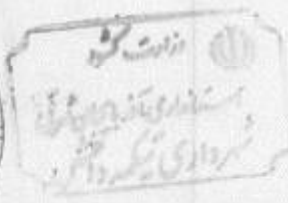 وزارت کشور
استانداری آذربایجان شرقی
شهرداری